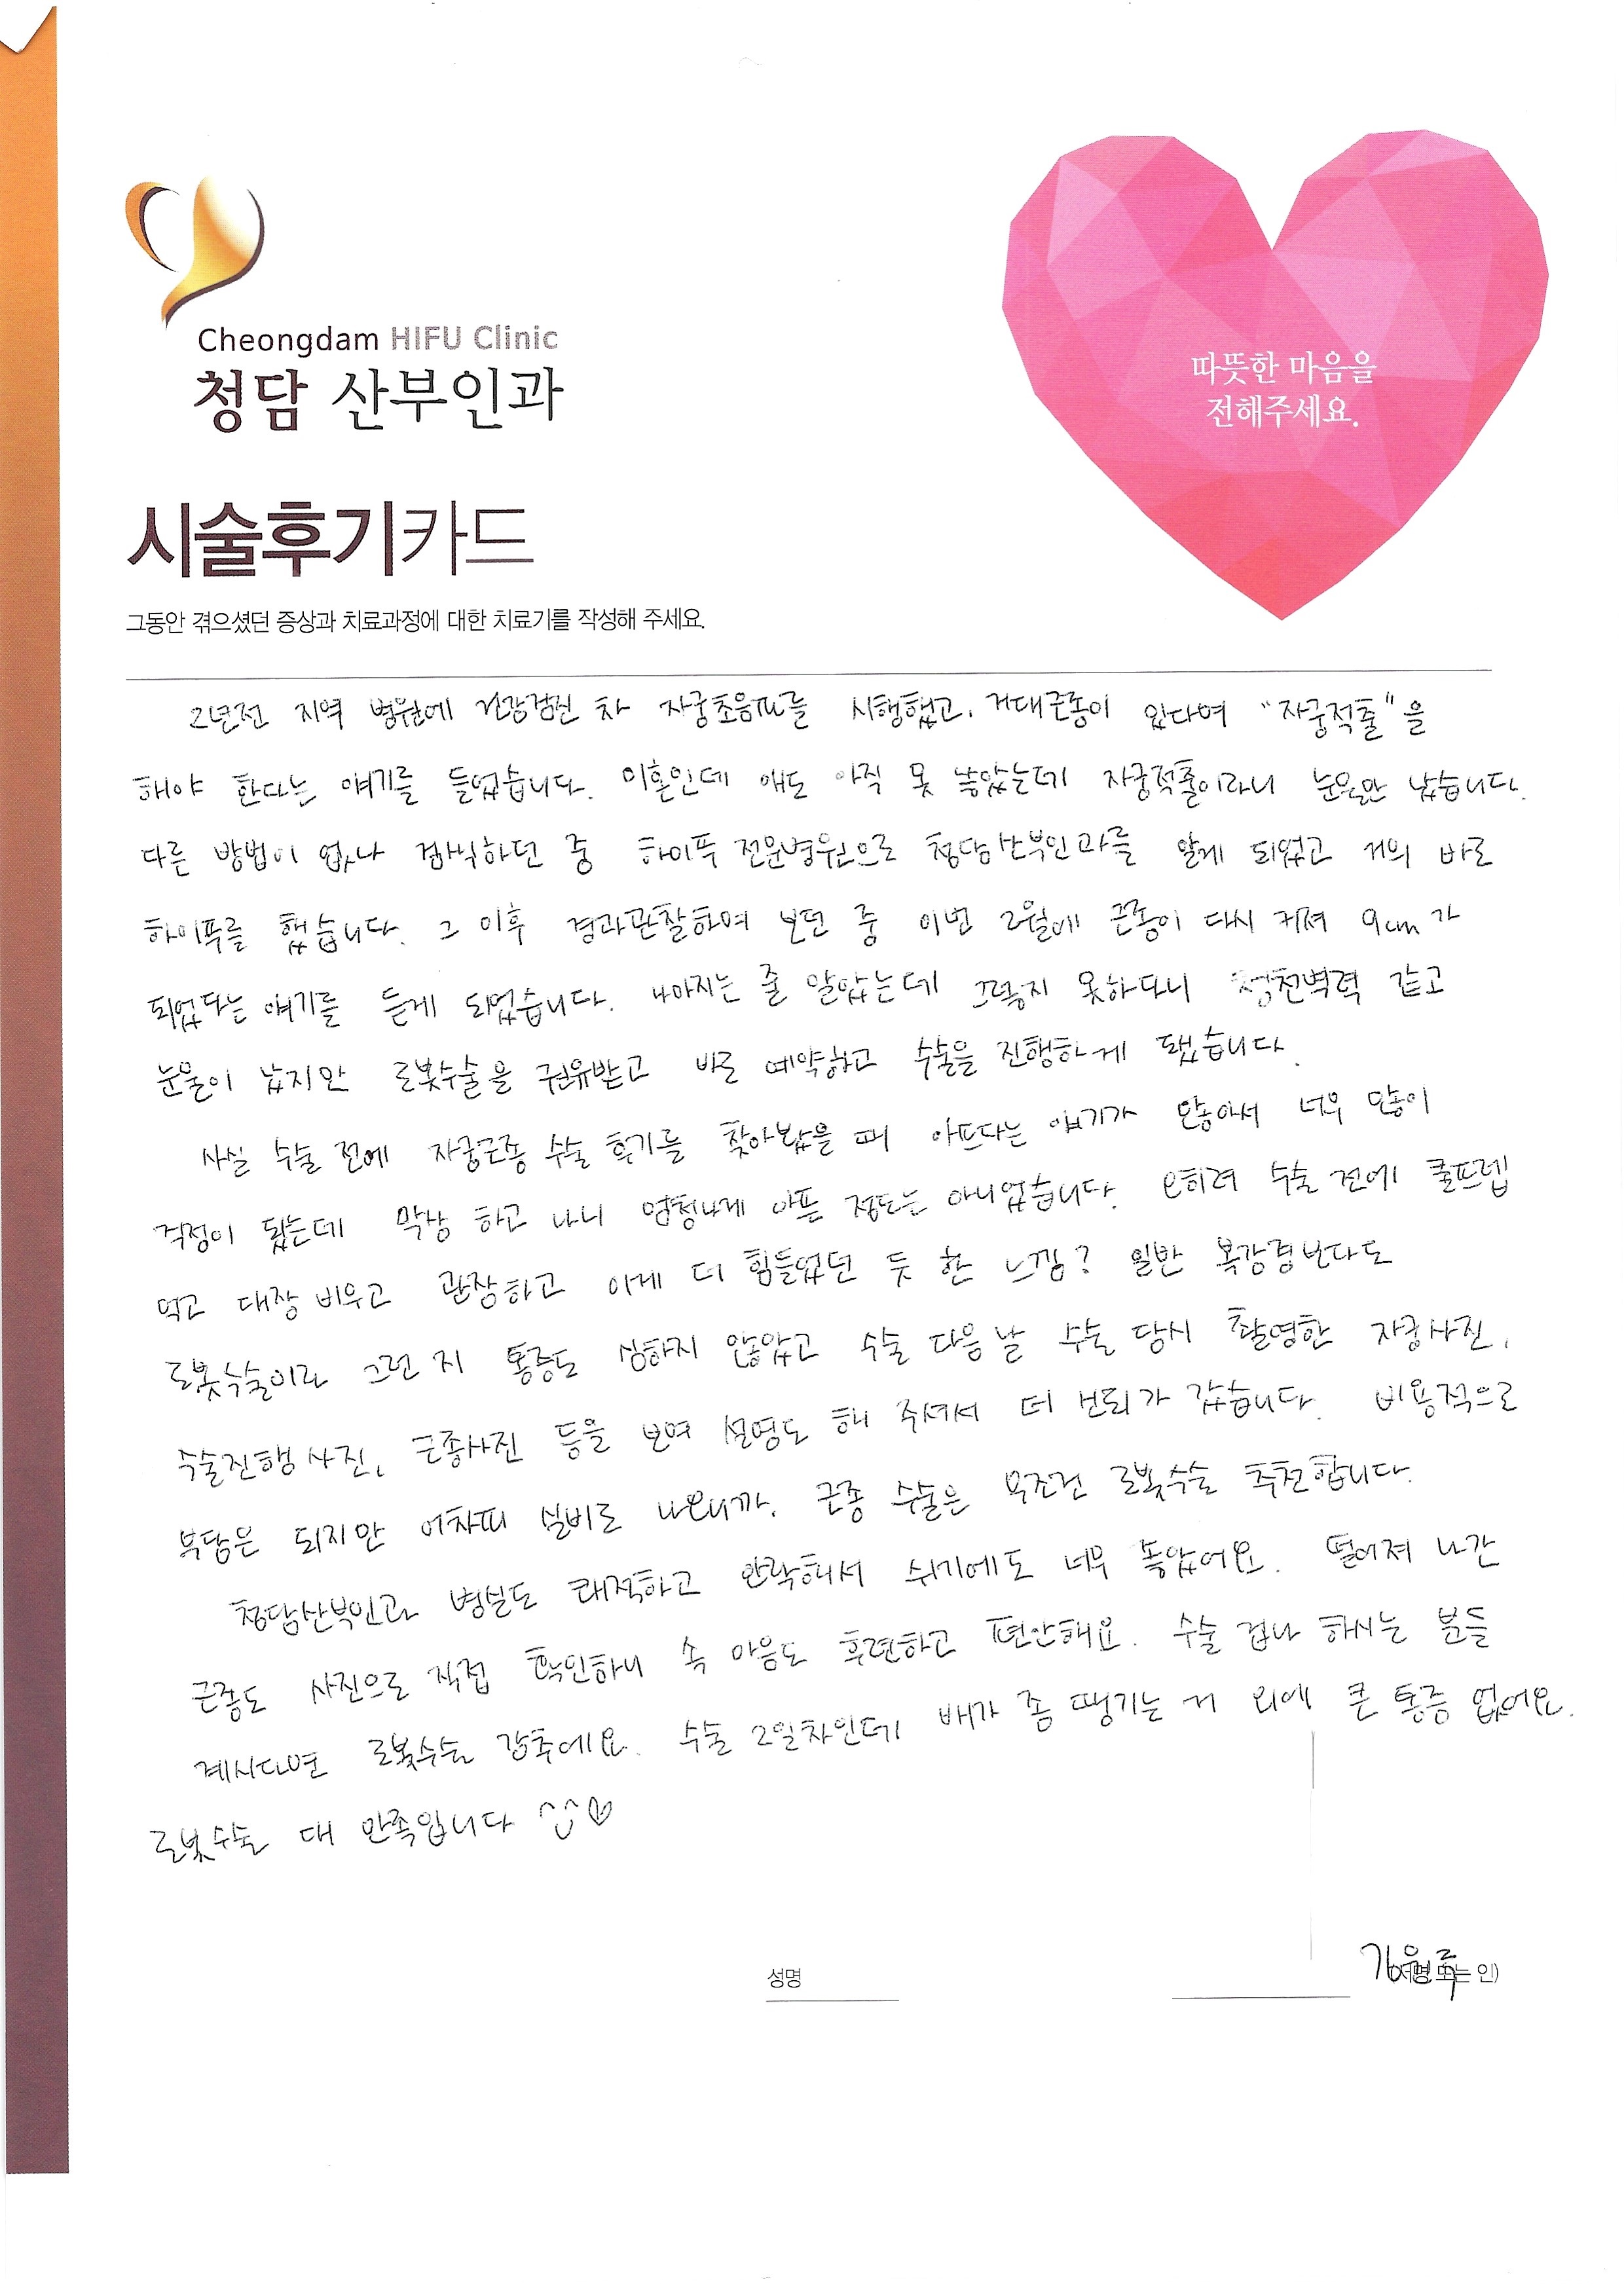 Cheongdam HIFU Clinic
청담 산부인과
따뜻한 마음을
전해주세요.
시술후기카드
그동안 겪으셨던 증상과 치료과정에 대한 치료기를 작성해 주세요.
2년전 지역 병원에 건강검진 차 자궁초음파를 시행했고, 거대근종이 있다며 "자궁적출"을
해야 한다는 얘기를 들었습니다. 미혼인데 애도 아직 못 낳았는데 자궁적출이라니 눈물만 났습니다.
다른 방법이 없나 검색하던 중 하이푸 전문병원으로 청담산부인과를 알게 되었고 거의 바로
하이푸를 했습니다. 그 이후 경과관찰하며 보던 중 이번 2월에 근종이 다시 커져 9cm가
되었다는 얘기를 듣게 되었습니다. 나아지는 줄 알았는데 그렇지 못하다니 청천벽력 같고
눈물이 났지만 로봇수술을 권유받고 바로 예약하고 수술을 진행하게 됐습니다.
사실 수술 전에 자궁근종 수술 후기를 찾아봤을 때 아프다는 얘기가 많아서 너무 많이
걱정이 됐는데 막상 하고 나니 엄청나게 아픈 정도는 아니었습니다. 오히려 수술 전에 쿨프렙
먹고 대장 비우고 관장하고 이게 더 힘들었던 듯 한 느낌? 일반 복강경보다도
로봇수술이라 그런 지 통증도 심하지 않았고 수술 다음날 수술 당시 촬영한 자궁사진,
수술진행 사진, 근종사진 등을 보여 설명도 해 주셔서 더 신뢰가 갔습니다. 비용적으로
부담은 되지만 어차피 실비로 나오니까. 근종 수술은 무조건 로봇수술 추천합니다.
청담산부인과 병실도 쾌적하고 안락해서 쉬기에도 너무 좋았어요. 떨어져 나간
근종도 사진으로 직접 확인하니 속 마음도 후련하고 편안해요. 수술 겁나 하시는 분들
계시다면 로봇수술 강추에요. 수술 2일차인데 배가 좀 땡기는 거 외에 큰 통증 없어요.
로봇수술 대 만족입니다 ^^♡
성명
(서명 또는 인)